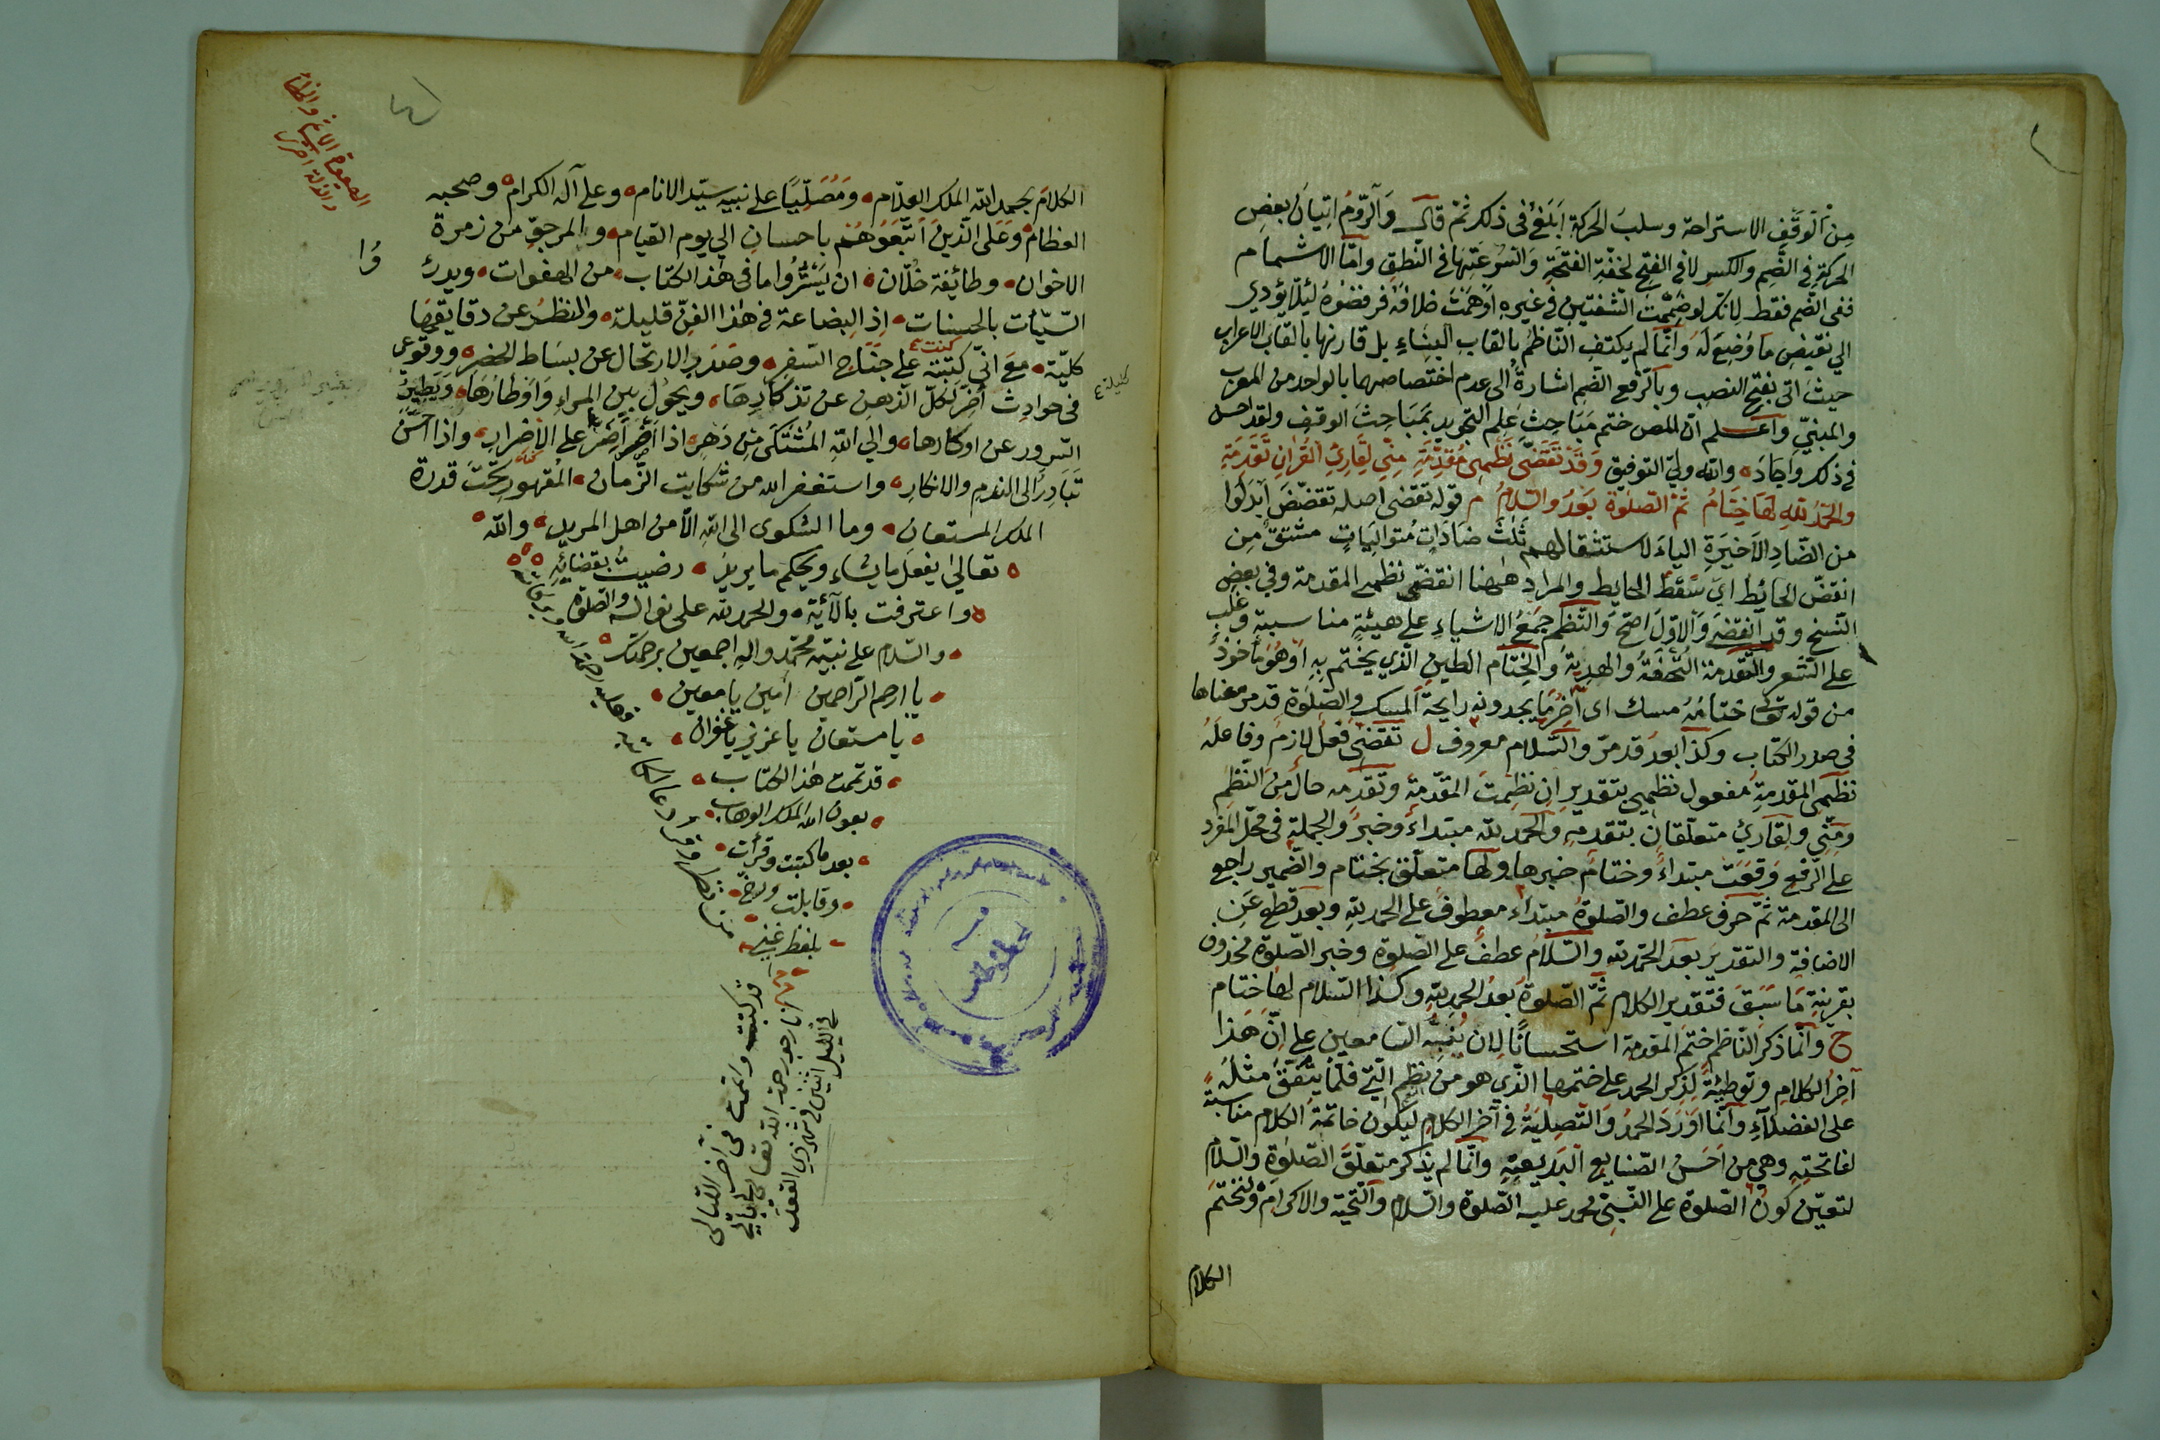 مِنَ الوَقْفِ الاستراحة وسلبَ الحركةِ اَبْلَغُ في ذلكَ ثمّ قالَ والرَّومُ اِتيانُ بعضِ
الحركةِ في الضّمِ والكسرِ لا في الفتحِ لخفّةِ الفتحةِ وَالسُرعَتِهَا في النّطقِ وامّا الاشمام
ففى الضّم فقط لِانّكَ لو ضَمَمتَ الشّفتينِ في غيرهِ اَوْهَمْتَ خلافَهُ فرفضوهُ لئلّا يؤدي
الي نقيضِ ما وُضِعَ لَهُ وَانّمَا لم يكتفِ النّاظمُ بالقابِ البِناءِ بل قارنها بالقاب الاعراب
حيثُ اتى بفتحِ النصبِ وبالرّفعِ الضّمِ اشارةً الى عدم اختصاصهما بالواحد من المعرب
والمبنيّ وَاعلم انّ المص ختم مَبَاحِثَ عِلمِ التجويدِ بمَبَاحِثَ الوقفِ ولقد احسنَ
في ذلك وَاَجَادَ والله وليّ التوفيق وَقَدْ تَقَضّى نَظْمِىَ المُقَدِّمَةِ مِنّى لِقَارِئِ القُرْاٰنِ تَقْدَمَةِ
والحَمْدُ للهِ لَهَا خِتَامُ ثُمّ الصّلوٰة بَعْدُ والسّلامُ م قوله تقضى اصله تقضّضَ اَبْدَلُوا
من الضّادِ الاَخيرَةِ الياءَ لاستثقالهم ثَلٰثَ ضَادَاتٍ مُتواليَاتٍ مشتقّ مِنَ
انقضّ الحائِطُ ايْ سَقَطَ الحايط والمراد هٰهنا انقضى نظميِ المقدمة وفي بعضِ
النّسخِ وقد انقضَى وَالاوّلَ اصحّ وَالنّظمُ جمَعُ الاشياءِ على هيئةٍ مناسبةٍ وغلبَ
على الشّعرِ وَالتَّقْدِمَةُ التُّحْفَةُ والهديةُ وَالخِتَام الطينُ الّذي يختم به اوْ هُوَ ماخوذٌ
من قوله تعَا ختامُهُ مسكٌ اى آخِرُ مَا يجدونهِ رايحةَ المسكِ والصّلوٰة قد مرّ معناها
في صدر الكتاب وكذا بعدُ قد مرّ والسّلام معروف ل تقضى فعلٌ لازمٌ وفاعلهُ
نظمى المقدمةِ مفعول نظمي بتقديرِ ان نظمتَ المقدّمةِ وتقدمه حالٌ مِنَ النّظمِ
ومنّى ولِقَارِئِ متعلّقانِ بتقدمةٍ والحمد لله مبتداءٌ وخبرٌ والجملةِ في محلّ المفرد
على الرّفعِ وَقعَتْ مبتداءً وختامٌ خبرها ولها متعلّقٌ بختام والضّمير راجع
الى المقدمة ثمّ حرف عطف والصّلوٰةُ مبتداءٌ معطوفٌ على الحمد لله وبعد قطع عَنِ
الاضافةِ والتقديرُ بعدَ الحَمْدِ لله والسّلامُ عطفٌ على الصّلوٰة وخبر الصّلوٰة محذوف
بقرينةِ مَا سَبَقَ فتقدير الكلام ثُمّ الصّلوٰةُ بعدُ الحمدِ للهِ وكذا السّلام لها ختام
ح وَانّما ذكر النّاظم ختمَ المقدمة استحسانًا لاِن يُنبّهَ السّامعين على اِنّ هَذا
آخِرُ الكلامِ وتوطيئةً لِذكر الحمد على ختمها الّذي هو من نظمٍ الّتي قلّمَا يتّفقُ مثلهُ
على الفضلاَءِ وانّما اوْرَدَ الحمدَ وَالتّصليَةُ في آخِرِ الكلامِ ليَكونَ خاتمةُ الكلام مناسبةً
لفاتحتهِ وهي من اَحْسَن الصّنايع البديعيّةِ وانّما لم يذكر متعلّقَ الصّلوٰةِ والسّلام
لتعيّن كونُ الصّلوٰة على النّبيّ محمد عليه الصّلوة والسّلام والتّحيّة والاكرام ولنختم
الكلام
الكلامَ بحمد الله الملك العلّام وَمُصَلِّيًا على نبيه سيّد الانام وعلى آله الكرام وصحبه
العظام وعَلى الّذينَ اَتّبَعُوهُم باحسانٍ الي يوم القيام والمرجوّ من زمرة
الاخوان وطائفة خلّان ان يَسْتُرُوا ما في هذا الكتاب من الهفوات ويدرؤ
وُا
السّيّأت بالحسنات اِذِ البضاعة في هذا الفنّ قليلة والنظرُ عن دقايقها
كليلة مَعَ انّى كتبته على جنَاحِ السّفرِ وصَدرِ الارتحال عن بسَاط الحضر ووقوعى
كنت
في حوادث اُخَرَ لكلّ الذّهن عن تذكارِهَا ويحولُ بين المراءِ وَاَوْطارهَا وَيَطِيرُ
السّرور عن اوكارها والى اللهِ المُشْتَكىَ مِنْ دَهرٍ اذا اَضَرَّ اَصَرَّ على الاِضْرارِ واذا اَحسَنَ
تَبَادرَ الى الندمِ والانكارِ وَاستغفر الله من شكايت الزّمان المقهورِ تحتَ قدرة
الملك المستعان وما الشكوى الى اللهِ الّا من اهل المريد والله
تعالىٰ يفعل ما يشاء ويحكم ما يريدُ رضيتُ بقضائِهِ
واعترفت بآلائِهِ والحمد لله على نواله والصّلوٰة
والسّلام على نبيّه محمّد واٰله اجمعين برحمتك
يا ارحم الرّاحمين امين يا معين
يا مستعان يا عزيز يا غفران
قد تمت هذا الكتاب
بعون الله الملك الوهاب
بعد ما كتبت وقرأت
وقابلت
بلفظ
قد كتبت واتممت في آخر الليالى
الله تعالى
في الليل اثنين في شهر ذي القعده